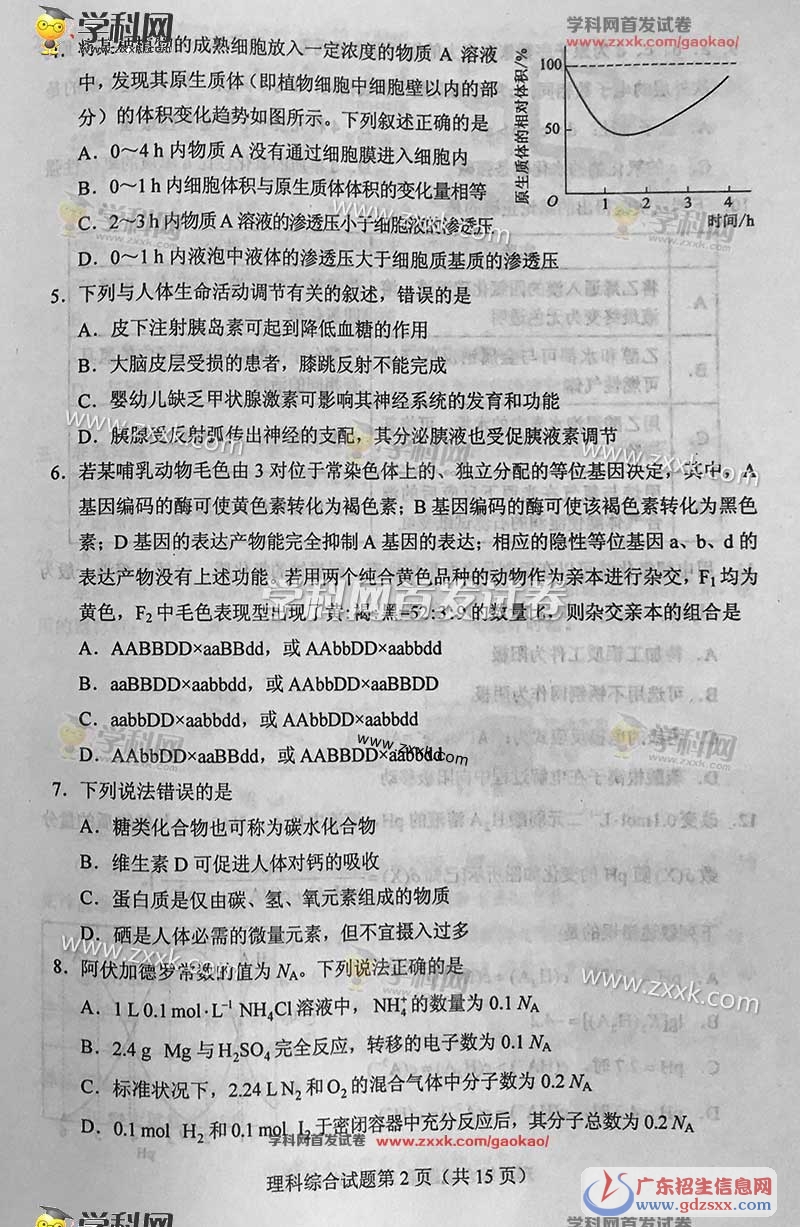 学科网
学科网首发试卷
www.zxxk.com/gaokao/
4. 将某种植物的成熟细胞放入一定浓度的物质 A 溶液
中,发现其原生质体(即植物细胞中细胞壁以内的部
分)的体积变化趋势如图所示。下列叙述正确的是
A. 0~4 h 内物质 A 没有通过细胞膜进入细胞内
B. 0~1 h 内细胞体积与原生质体体积的变化量相等
C. 2~3 h 内物质 A 溶液的渗透压小于细胞液的渗透压
D. 0~1 h 内液泡中液体的渗透压大于细胞质基质的渗透压
原生质体的相对体积/%
100
50
O 1 2 3 4
时间/h
5. 下列与人体生命活动调节有关的叙述,错误的是
A. 皮下注射胰岛素可起到降低血糖的作用
B. 大脑皮层受损的患者,膝跳反射不能完成
C. 婴幼儿缺乏甲状腺激素可影响其神经系统的发育和功能
D. 胰腺受反射弧传出神经的支配,其分泌胰液也受促胰液素调节
6. 若某哺乳动物毛色由 3 对位于常染色体上的、独立分配的等位基因决定,其中,A
基因编码的酶可使黄色素转化为褐色素;B 基因编码的酶可使该褐色素转化为黑色
素;D 基因的表达产物能完全抑制 A 基因的表达;相应的隐性等位基因 a、b、d 的
表达产物没有上述功能。若用两个纯合黄色品种的动物作为亲本进行杂交,F₁ 均为
黄色,F₂ 中毛色表现型出现了黄:褐:黑=52:3:9 的数量比,则杂交亲本的组合是
A. AABBDD×aaBBdd,或 AAbbDD×aabbdd
B. aaBBDD×aabbdd,或 AAbbDD×aaBBDD
C. aabbDD×aabbdd,或 AAbbDD×aabbdd
D. AAbbDD×aaBBdd,或 AABBDD×aabbdd
7. 下列说法错误的是
A. 糖类化合物也可称为碳水化合物
B. 维生素 D 可促进人体对钙的吸收
C. 蛋白质是仅由碳、氢、氧元素组成的物质
D. 硒是人体必需的微量元素,但不宜摄入过多
8. 阿伏加德罗常数的值为 Nᴀ。下列说法正确的是
A. 1 L 0.1 mol·L⁻¹ NH₄Cl 溶液中,NH₄⁺ 的数量为 0.1 Nᴀ
B. 2.4 g Mg 与 H₂SO₄ 完全反应,转移的电子数为 0.1 Nᴀ
C. 标准状况下,2.24 L N₂ 和 O₂ 的混合气体中分子数为 0.2 Nᴀ
D. 0.1 mol H₂ 和 0.1 mol I₂ 于密闭容器中充分反应后,其分子总数为 0.2 Nᴀ
学科网首发试卷
www.zxxk.com/gaokao/
理科综合试题第 2 页(共 15 页)
广东招生信息网
www.gdzsxx.com